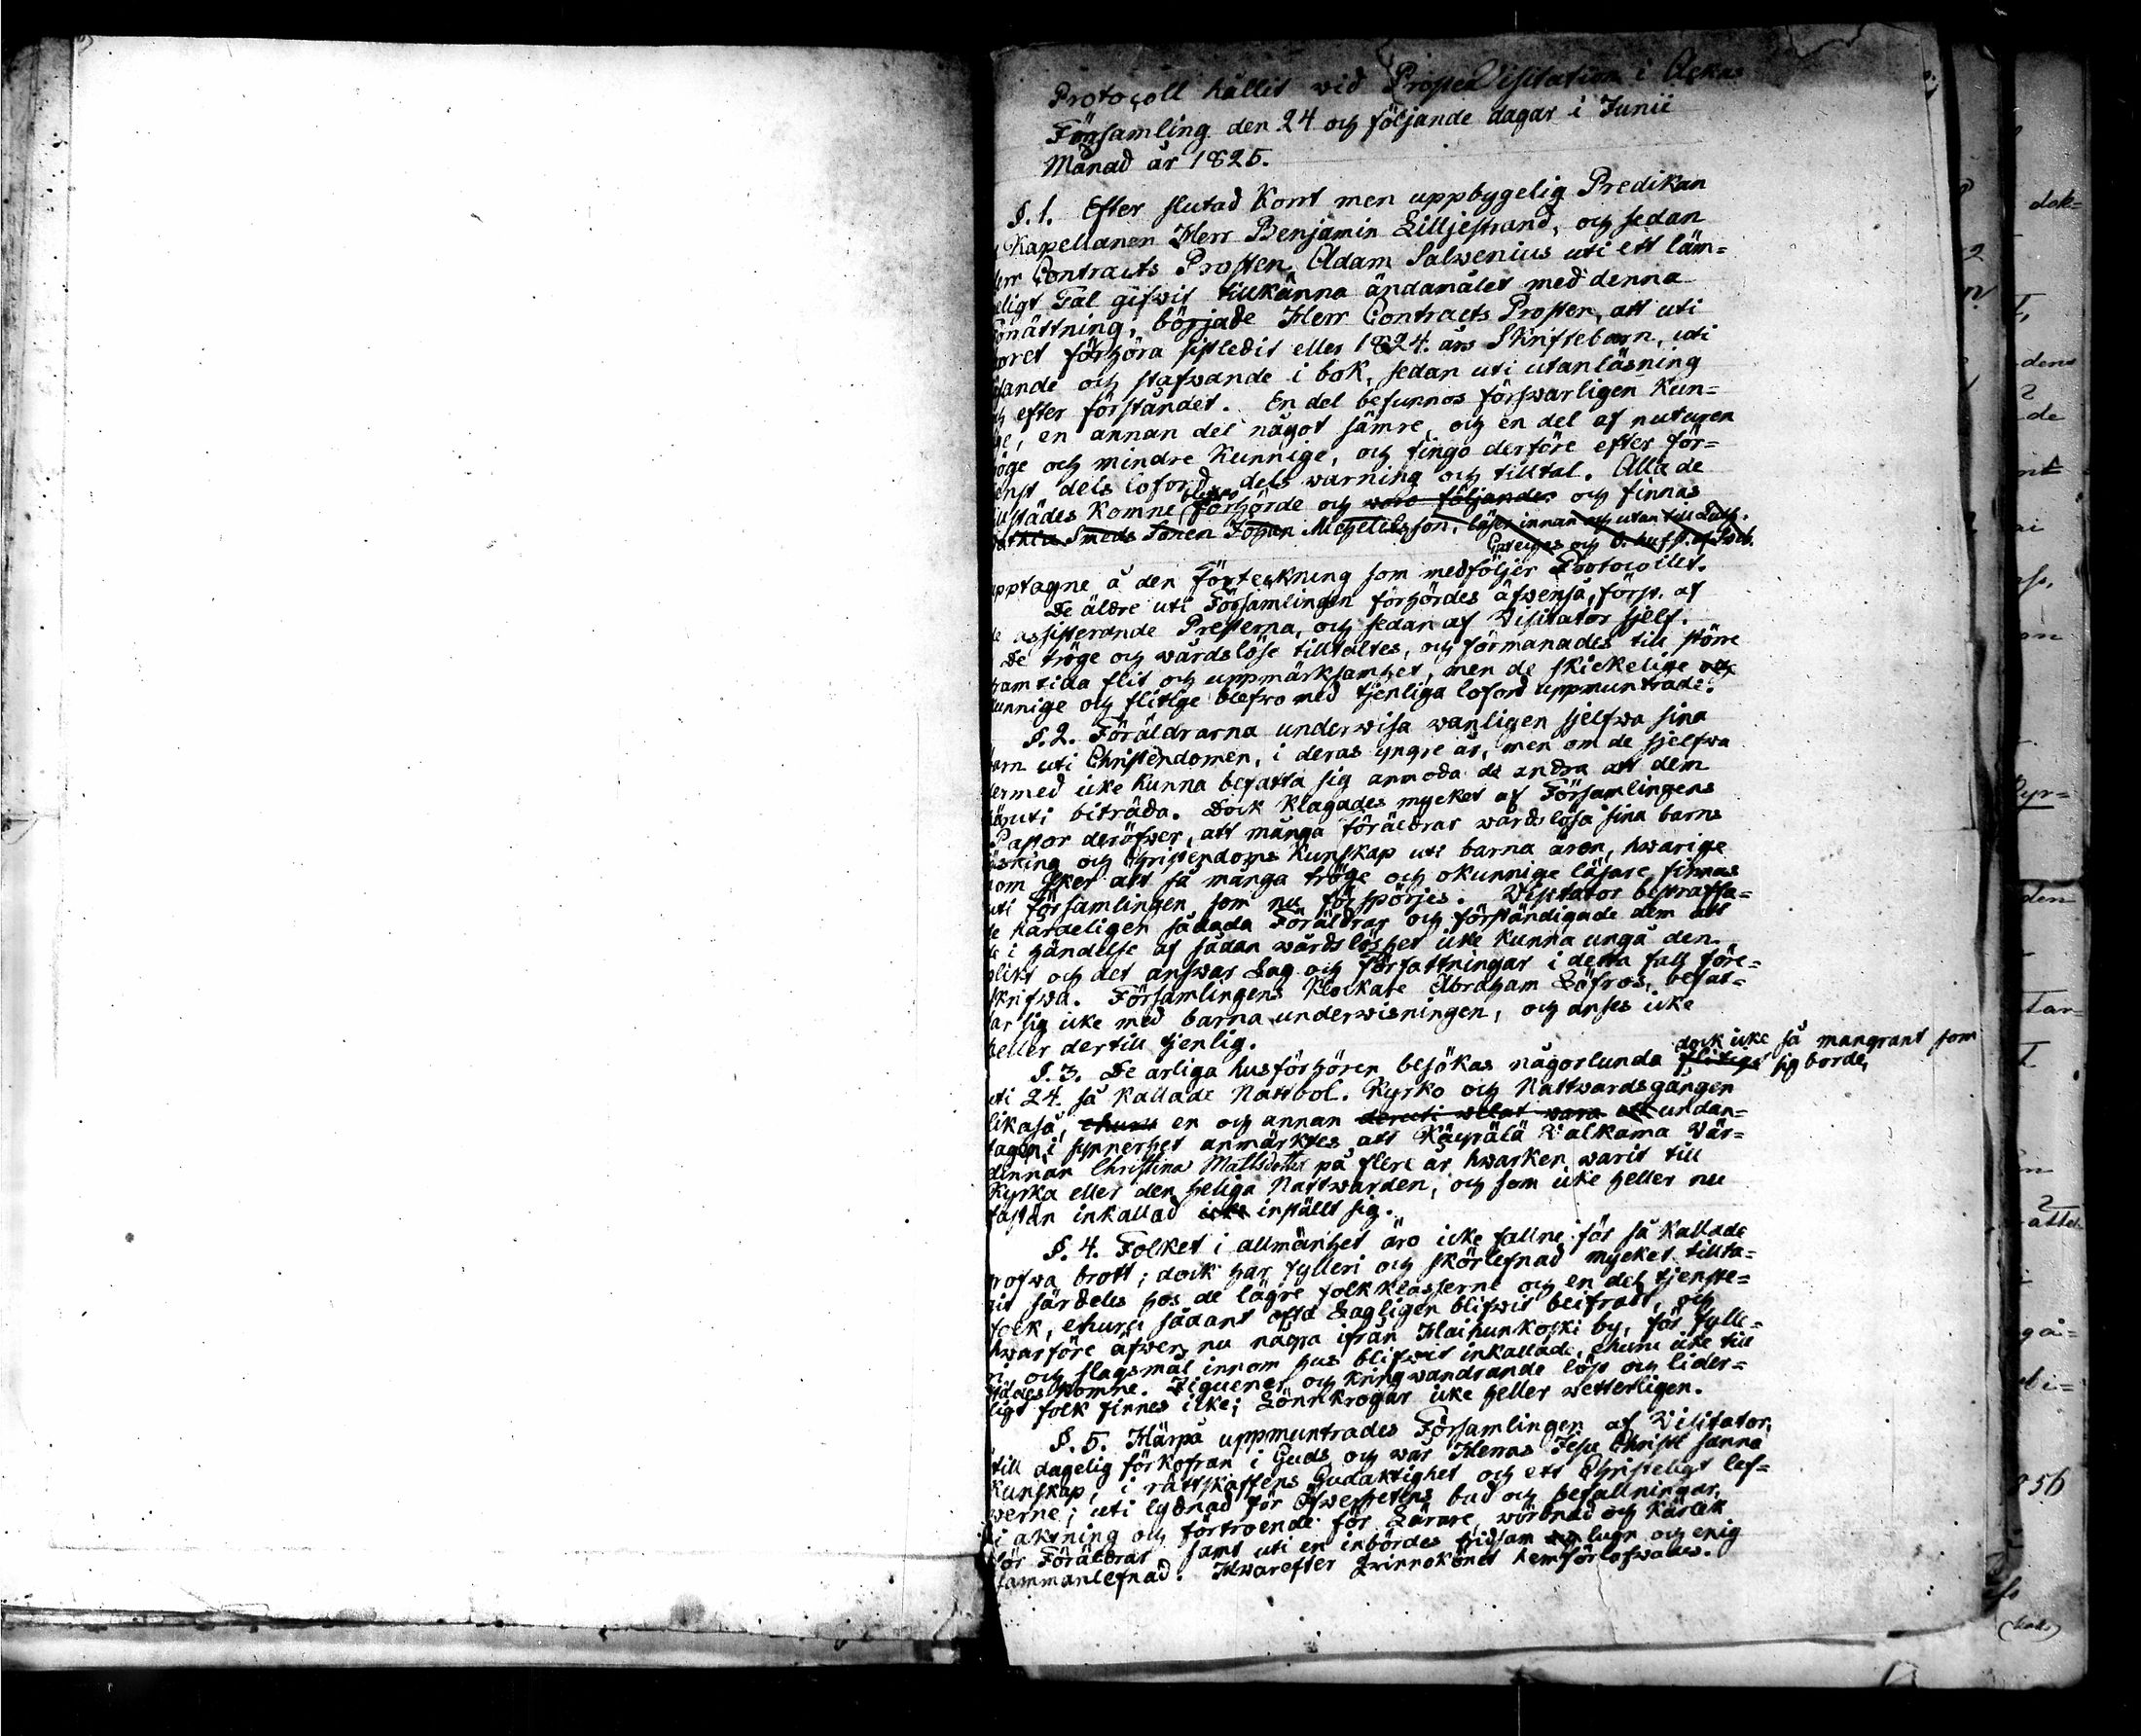 Protocoll hållit vid Prosten Visitation i Ackas
Församling den 24 och följande dagar i Junii
Månad år 1825.
§. 1. Efter slutad Kort men uppbygelig Predikan
Kapellanen Herr Benjamin Lilljestrand, och sedan
err Contracts Prosten Adam Salvenius uti ett läm=
eligt Tal gifwit tillkänna ändamålet med denna
örrättning, började Herr Contracts Prosten, att uti
oret förhöra sistledit eller 1824. års Skriftebarn, uti
sande och stafwande i bok, sedan uti utanläsning
h efter förståndet. En del befunnos förswarligen Kun=
ge, en annan del något sämre, och en del af naturen
öge och mindre Kunnige, och fingo derföre efter för=
enst dels loford dels warning och tilltal. Alla de
llstädes Komne blefwo förhörde och woro följande: och finnas
Smeds Sonen Johan Michelsson, läser innan och utan till Luth.
Cateches och
pptagne å den förteckning som medföljer Protocollet.
De äldre uti Församlingen förhördes äfwenså, först af
e assisterande Presterna, och sedan af Visitator sjelf.
De tröge och wårdslöse tilltaltes, och förmanades till större
ramtida flit och uppmärksamhet, men de skickelige och
unnige och flitige blefwo med tjenliga loford uppmuntrade.
§. 2. Föräldrarna underwisa wanligen sjelfwa sina
arn uti Christendomen, i deras yngre år, men om de sjelfwa
ermed icke kunna befatta sig anmoda de andra att dem
äruti biträda. Dock Klagades mycket af Församlingens
Pastor deröfwer, att många föräldrar wårdslösa sina barns
äsning och Christendoms Kunskap uti barna åren, hwarige
om sker att så många tröge och okunnige läsare finnas
uti församlingen som nu förspörjes. Visitator bestraffa=
e hardeligen sådada Föräldrar och förständigade dem att
e i händelse af sådan wårdslöshet icke kunna ungå den
plikt och det answar Lag och Författningar i detta fall före=
skrifwa. Församlingens Klockare Abraham Löfros, befat=
ar sig icke med barna underwisningen, och anses icke
heller dertill tjenlig.
§. 3. De årliga husförhören besökas någorlunda flitigt dock icke så mangrant som sig borde,
uti 24. så Kallade Nattbol. Kyrko och Nattwardsgången
likaså, ehuru en och annan deruti welat vara att undan=
tagen, i synnerhet anmärktes att Käypälä Valkama Vär=
dinnan Christina Mattsdotter på flere år hwarken warit till
Kyrka eller den heliga Nattwarden, och som icke heller nu
fastän inkallad icke inställt sig.
§. 4. Folket i allmänhet äro icke fallne för så Kallade
grofwa brott; dock har fylleri och skörlefnad mycket tillta=
git särdeles hos de lägre folk klasserne och en del tjenste=
folk, ehuru sådant ofta Lagligen blifwit beifradt, och
hwarföre äfwen nu några ifrån Haihunkoski by, för fylle=
ri och slagsmål innom hus blifwit inkallade, ehuru icke till
städes komne. Ziguener och kringwandrande löst och lider=
ligt folk finnes icke; Lönnkrogar icke heller wetterligen.
§. 5. Härpå uppmuntrades Församlingen af Visitator,
till dagelig förkofran i Guds och wår Herras Jesu Christi sanna
Kunskap, i rättskaffens Gudaktighet och ett Christeligt lef=
werne; uti lydnad för Öfwerhetens bud och befallningar,
i aktning och förtroende för Lärare, wördnad och Kärlek
för Föräldrar, samt uti en inbördes fridsam lugn och enig
sammanlefnad. Hwarefter Qvinnokönet hemförlofwades.